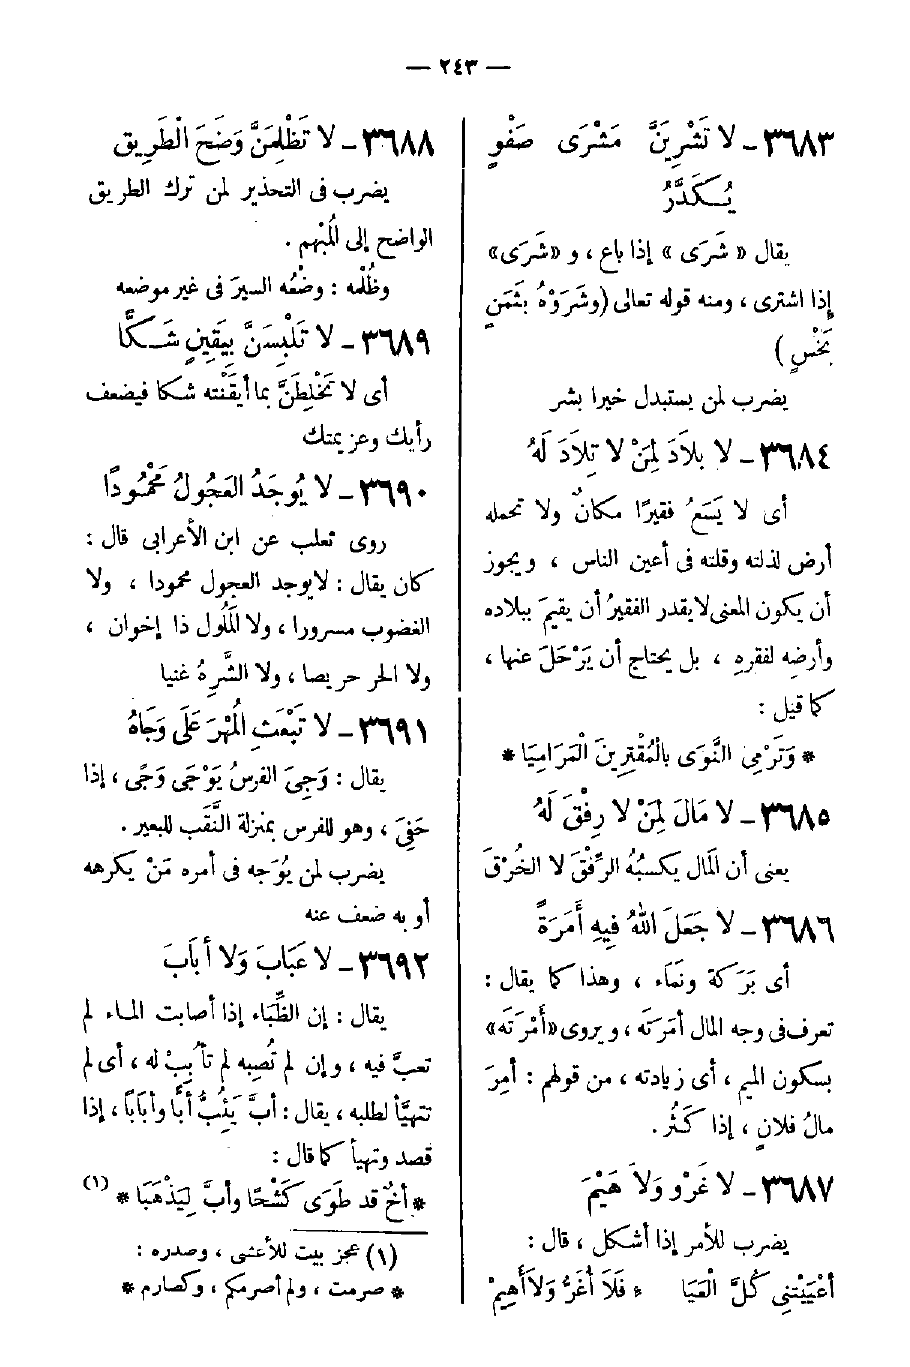 — ٢٤٣ —
٣٦٨٣ – لا تَشْرِيَنَّ مَشْرَى صَفْوٍ
يُـكَدَّرُ
يقال « شَرَى » إذا باع ، و «شَرَى»
إذا اشترى ، ومنه قوله تعالى (وشَرَوْهُ بثَمَنٍ
بَخْسٍ )
يضرب لمن يستبدل خيرا بشر
٣٦٨٤ – لا بلاَدَ لِمَنْ لا تِلاَدَ لَهُ
أى لا يَسَعُ فقيرًا مكانٌ ولا تحمله
أرض لذلته وقلته فى أعين الناس ، ويجوز
أن يكون المعنى لا يقدر الفقيرُ أن يقيمَ ببلاده
وأرضِه لفقرهِ ، بل يحتاج أن يَرْحَلَ عنها ،
كما قيل :
* وَتَرْمِى النَّوَى بالْمُقْتِرِينَ الْمَرَامِيَا *
٣٦٨٥ – لا مَالَ لِمَنْ لا رِفْقَ لَهُ
يعنى أن المال يكسبُهُ الرِّفْقَ لا الخُرْقَ
٣٦٨٦ – لا جَعَلَ اللهُ فِيهِ أَمَرَةً
أى بَرَكة ونَمَاء ، وهذا كما يقال :
تعرف فى وجه المال أمَرَتَه ، ويروى «أَمْرَتَه»
بسكون الميم ، أى زيادته ، من قولهم : أمِرَ
مالُ فلانٍ ، إذا كَثُر .
٣٦٨٧ – لا غَرْو وَلاَ هَيْمَ
يضرب للأمر إذا أشكل ، قال :
أعْيَيْتنِى كُلَّ الْعَيَا * فَلَا أغَرُّ وَلاَ أَهِيمْ
٣٦٨٨ – لا تَظْلِمَنَّ وَضَحَ الْطَرِيق
يضرب فى التحذير لمن ترك الطريق
الواضح إلى المُبْهم .
وظُلْمه : وضْعُه السيرَ فى غير موضعه
٣٦٨٩ – لا تَلْبِسَنَّ بِيَقِينٍ شَـكًّا
أى لا تَخْلِطَنَّ بما أيقَنْته شكا فيضعف
رأيك وعزيمتك
٣٦٩٠ – لا يُوجَدُ العَجُولُ مَحْمُودًا
روى ثعلب عن ابن الأعرابى قال :
كان يقال : لا يوجد العجول محمودا ، ولا
الغضوب مسرورا ، ولا المَلُول ذا إخوان ،
ولا الحر حريصا ، ولا الشَّرِهُ غنيا
٣٦٩١ – لا تَبْعَثِ الْمُهْرَ عَلَى وَجَاهُ
يقال : وَجِىَ الفرسُ يَوْجَى وَجًى ، إذا
حَفِىَ ، وهو للفرس بمنزلة النَّقَب للبعير .
يضرب لمن يُوَجه فى أمره مَنْ يكرهه
أو به ضعف عنه
٣٦٩٢ – لا عَبَابَ وَلا أبَابَ
يقال : إن الظِّبَاء إذا أصابت المـاء لم
تعبَّ فيه ، وإن لم تُصِبه لم تأبِبْ له ، أى لم
تتهيَّأ لطلبه ، يقال : أبَّ يَئِبُّ أبًّا وأبَابًا ، إذا
قصد وتهيأ كما قال :
* أخٌ قد طَوَى كَشْحًا وأبَّ لِيَذْهَبَا * (١)
(١) عجز بيت للأعشى ، وصدره :
* صرمت ، ولم أصرمكم ، وكصارم *